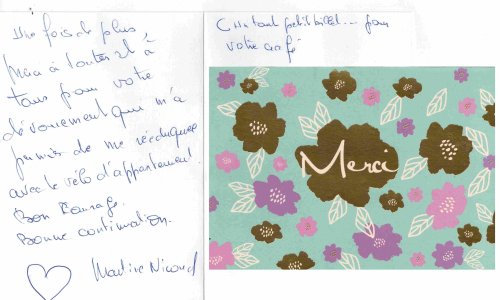 Une fois de plus
merci à toutes et à
tous pour votre
dévouement qui m'a
permis de me rééduquer
avec le vélo d'appartement.
Bon Courage.
Bonne continuation.
Martine Nicoud
petit billet... pour
votre café
Merci